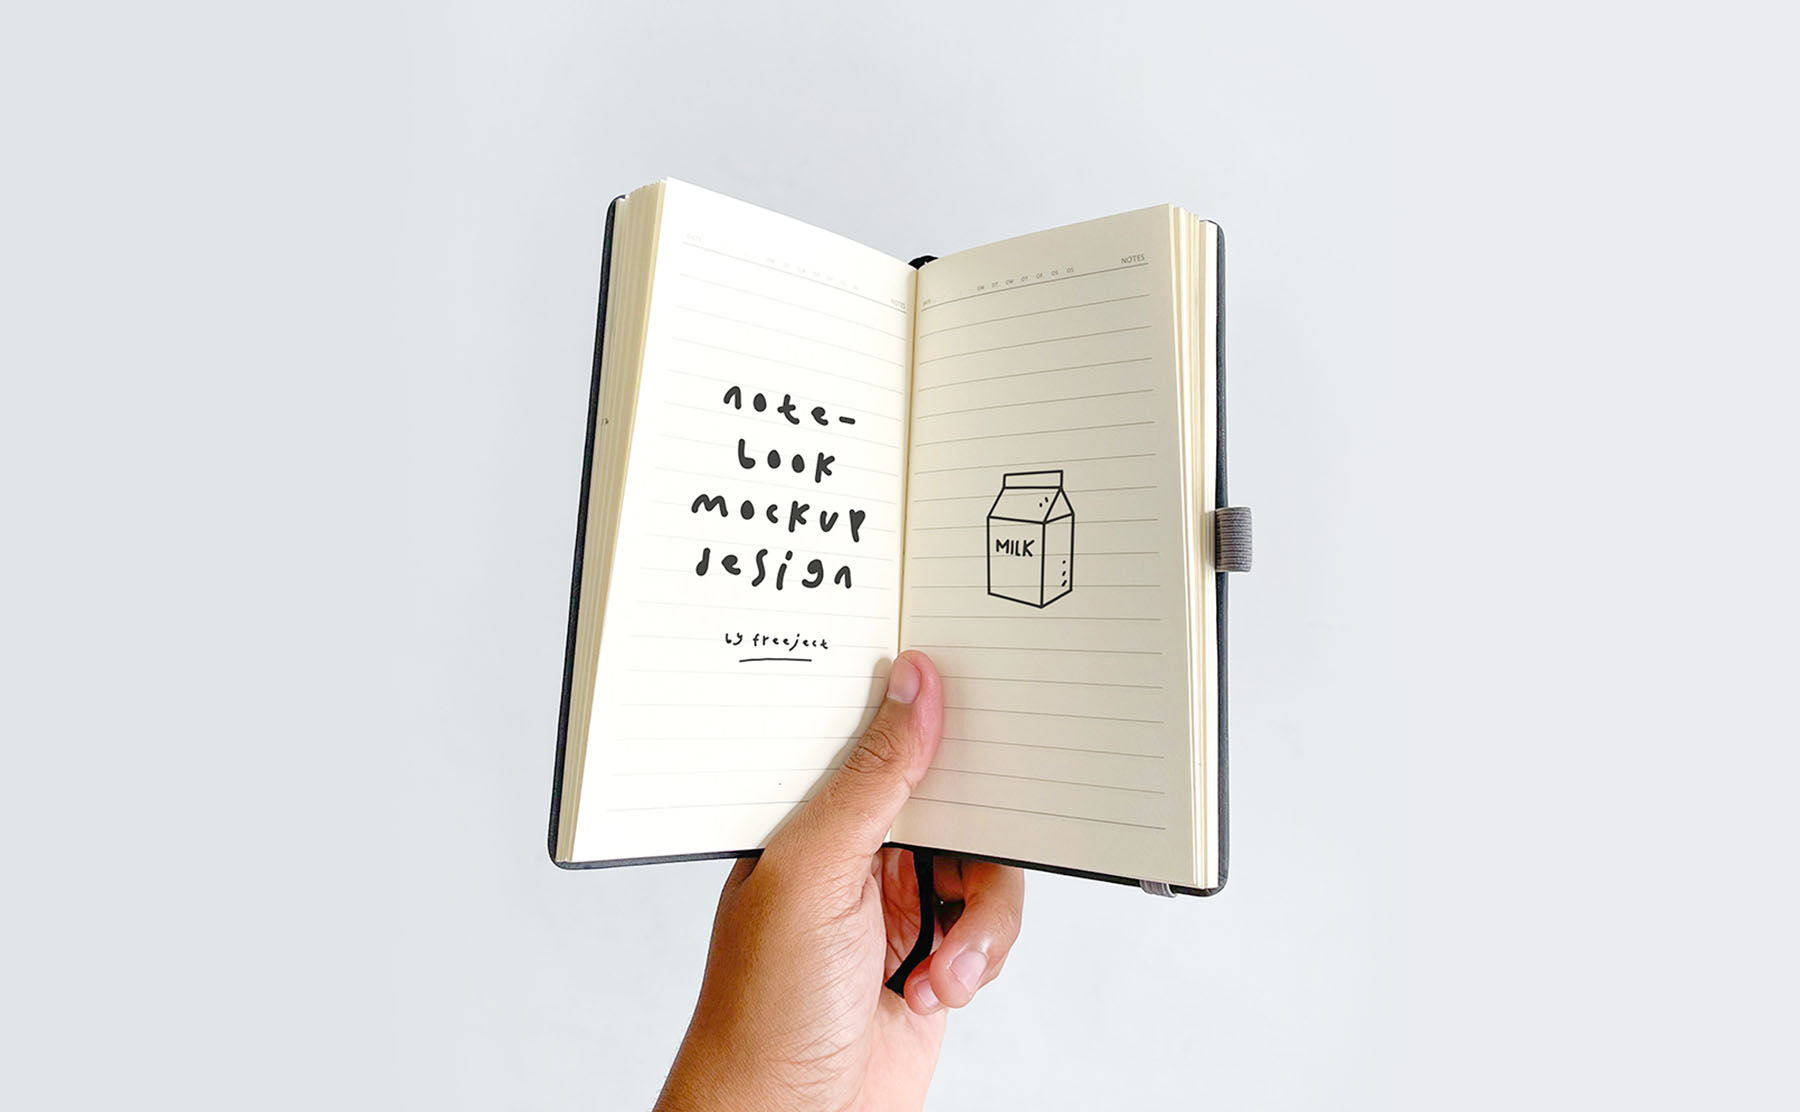 DATE
NOTES
note-
book
mockup
design
by freeject
NOTES
MILK